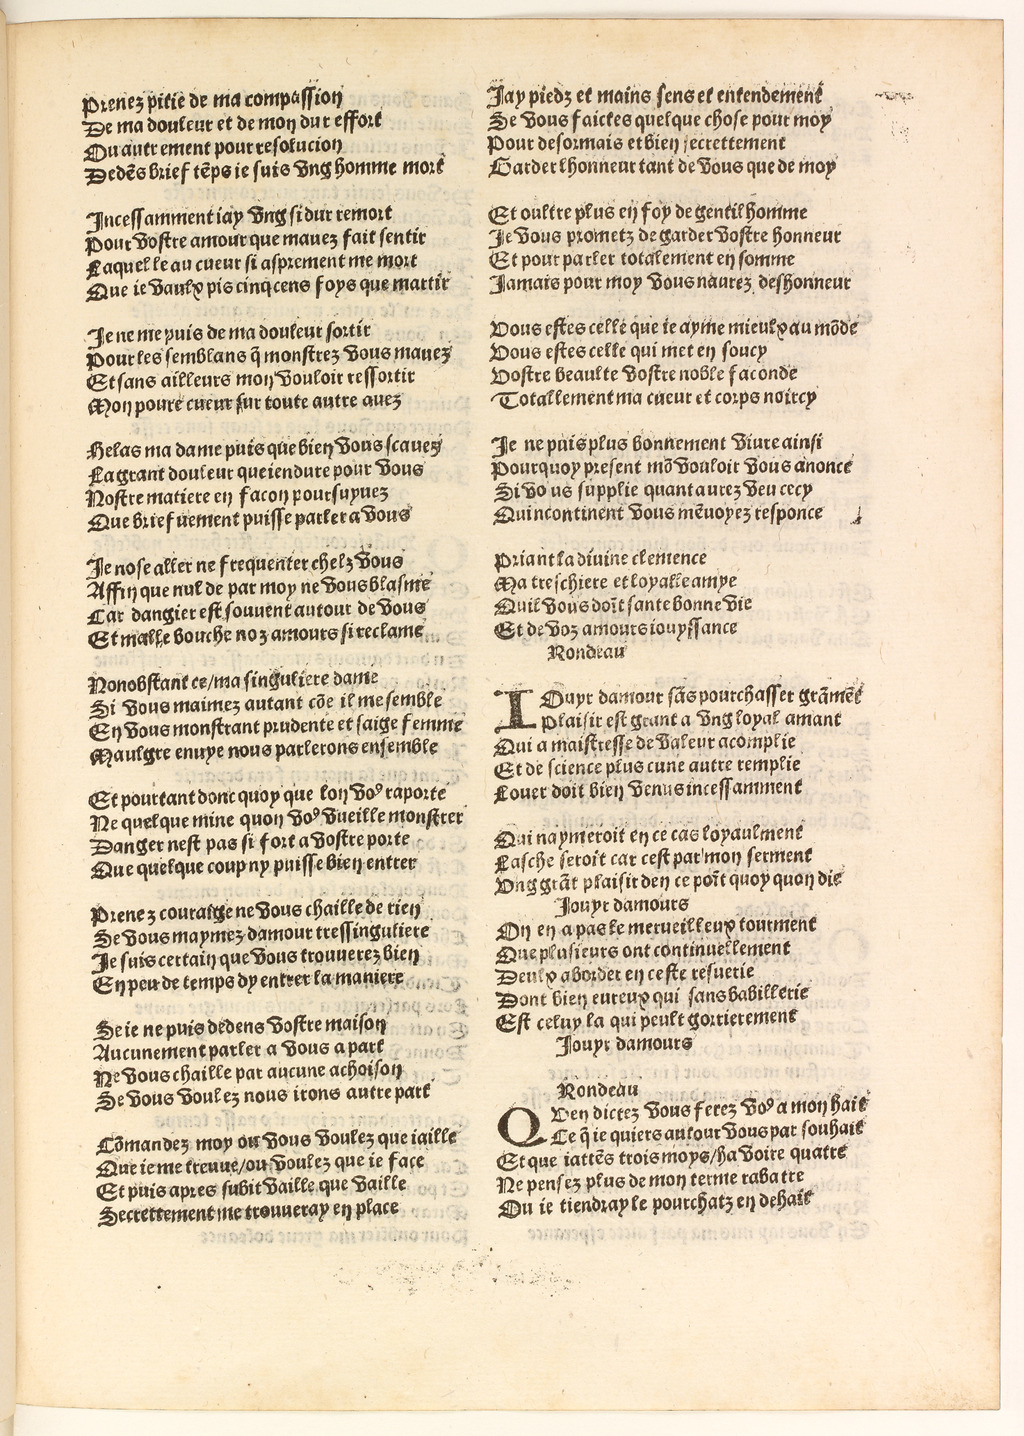 Prenez pitie de ma compassion
De ma douleur et de mon dur effort
Ou autrement pour resolucion
Dedēs brief tēps ie suis vng homme mort
Incessamment iay vng si dur remort
Pour vostre amour que mauez fait sentir
Laquelle au cueur si asprement me mort
Que ie vaulx pis cinq cens foys que martir
Je ne me puis de ma douleur sortir
Pour les semblans q̄ monstrez vous mauez
Et sans ailleurs mon vouloir ressortir
Mon poure cueur sur toute autre auez
Helas ma dame puis que bien vous scauez
La grant douleur que iendure pour vous
Nostre matiere en facon poursuyuez
Que briefuement puisse parler a vous
Je nose aller ne frequenter chelz vous
Affin que nul de par moy ne vous blasme
Car dangier est souuent autour de vous
Et malle bouche noz amours si reclame
Nonobstant ce/ma singuliere dame
Si vous maimez autant cōe il me semble
En vous monstrant prudente et saige femme
Maulgre enuye nous parlerons ensemble
Et pourtant donc quoy que lon voꝰ raporte
Ne quelque mine quon voꝰ vueille monstrer
Danger nest pas si fort a vostre porte
Que quelque coup ny puisse bien entrer
Prenez couraige ne vous chaille de rien
Se vous maymez damour tressinguliere
Je suis certain que vous trouuerez bien
En peu de temps dy entrer la maniere
Se ie ne puis dedens vostre maison
Aucunement parler a vous a part
Ne vous chaille par aucune achoison
Se vous voulez nous irons autre part
Cōmandez moy ou vous voulez que iaille
Que ie me treuue/ou voulez que ie face
Et puis apres subit vaille que vaille
Secrettement me trouueray en place
Jay piedz et mains sens et entendement
Se vous faictes quelque chose pour moy
Pour desormais et bien secrettement
Garder lhonneur tant de vous que de moy
Et oultre plus en foy de gentil homme
Je vous prometz de garder vostre honneur
Et pour parler totalement en somme
Jamais pour moy vous naurez deshonneur
Vous estes celle que ie ayme mieulx au mōde
Vous estes celle qui met en soucy
Vostre beaulte vostre noble faconde
Totallement ma cueur et corps noircy
Je ne puis plus bonnement viure ainsi
Pourquoy present mō vouloir vous anonce
Si vous supplie quant aurez veu cecy
Quincontinent vous mēuoyez responce
Priant la diuine clemence
Ma treschiere et loyalle amye
Quil vous doīt sante bonne vie
Et de voz amours iouyssance
Rondeau
IOuyr damour sās pourchasser grāmēt
Plaisir est grant a vng loyal amant
Qui a maistresse de valeur acomplie
Et de science plus cune autre remplie
Louer doit bien venus incessamment
Qui naymeroit en ce cas loyaulment
Lasche seroit car cest par mon serment
Vng grāt plaisir den ce poīt quoy quon die
Jouyr damours
On en a pas le merueilleux tourment
Que plusieurs ont continuellement
Deulx aborder en ceste resuerie
Dont bien eureux qui sans babillerie
Est celuy la qui peult gorrierement
Jouyr damours
Rondeau
QVen dictez vous ferez voꝰ a mon hait
Ce q̄ ie quiers autour vous par souhait
Et que iattēs trois moys/ha voire quatre
Ne pensez plus de mon terme rabatre
Ou ie tiendray le pourchatz en dehait